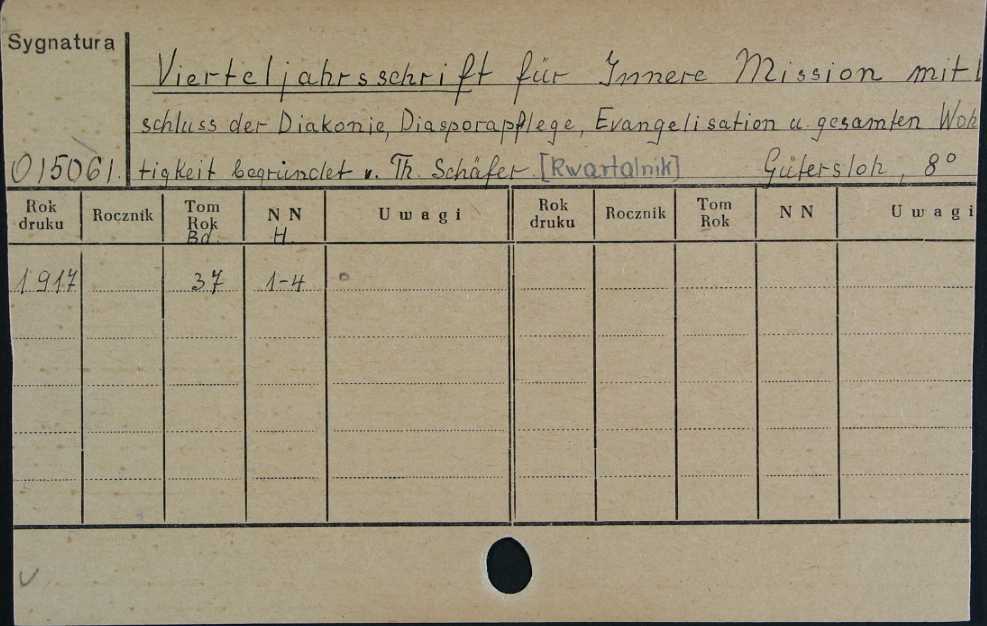 Sygnatura
Vierteljahrsschrift für Innere Mission mit
schluss der Diakonie, Diasporapflege, Evangelisation u. gesamten Woh
015061. tigkeit begründet v. Th. Schäfer [Kwartalnik] Gütersloh, 8°
Rok druku Rocznik Tom Rok Bd. NN H. Uwagi Rok druku Rocznik Tom Rok NN Uwagi
1917 37 1-4